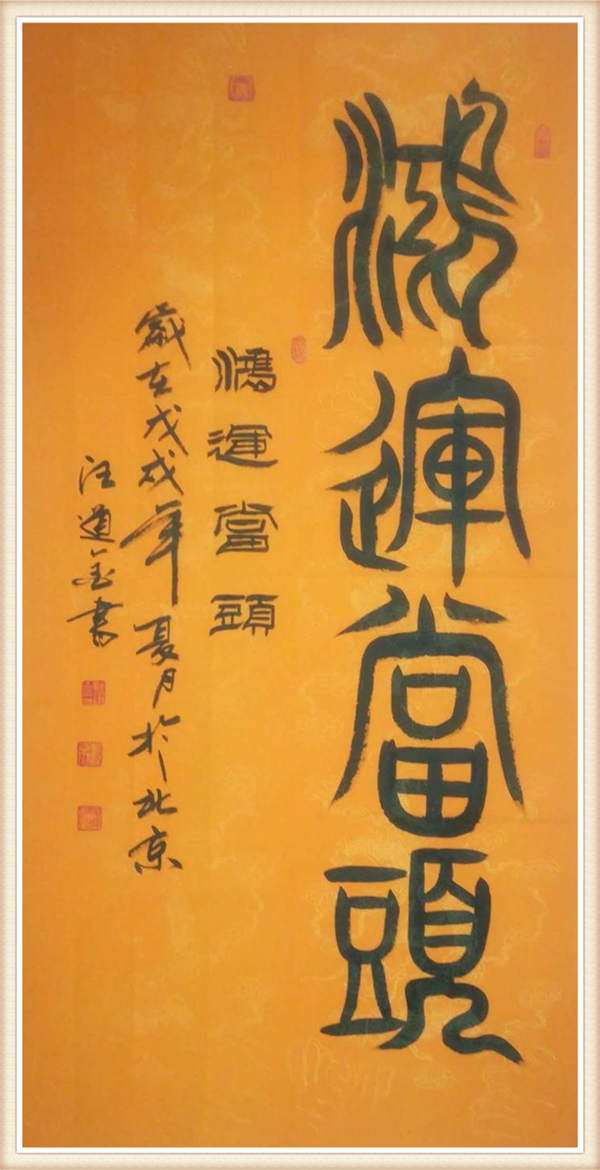 鴻運當頭
鴻運當頭
歲在戊戌年夏月於北京
汪道金書